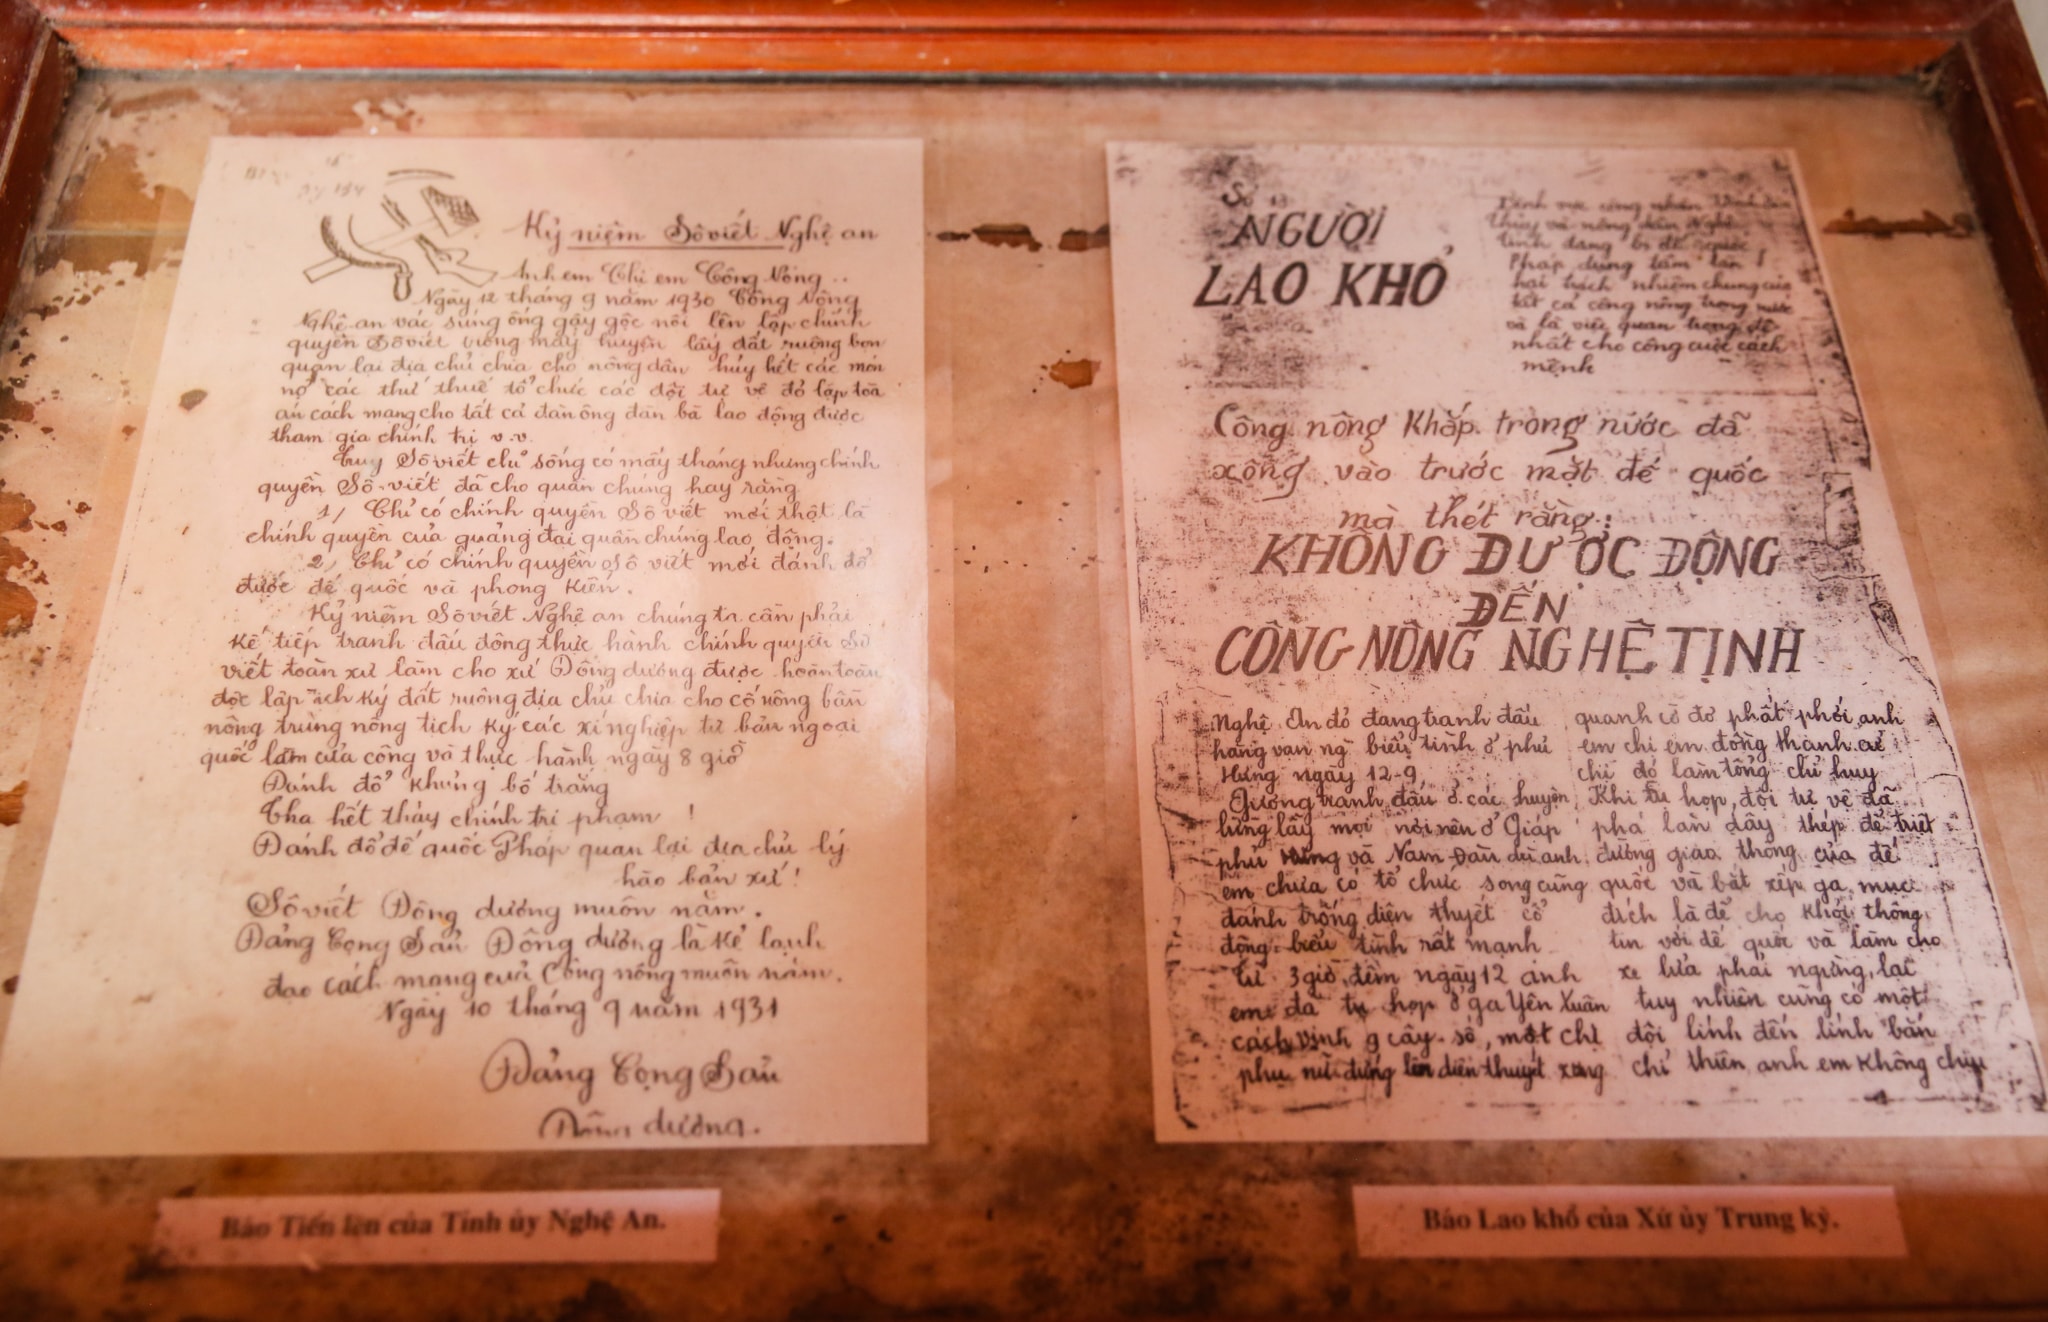 Kỷ niệm Sô viết Nghệ an
Anh em Chị em Công Nông..
Ngày 12 tháng 9 năm 1930 Công Nông
Nghệ-an vác súng ống gậy gộc nổi lên lập chính
quyền Sô viết trong mấy huyện lấy đất ruộng bọn
quan lại địa chủ chia cho nông dân hủy hết các món
nợ các thứ thuế tổ chức các đội tự vệ đỏ lập toà
án cách mạng cho tất cả đàn ông đàn bà lao động được
tham gia chính trị v.v.
Tuy Sô viết chỉ sống có mấy tháng nhưng chính
quyền Sô-viết đã cho quần chúng hay rằng
1/ Chỉ có chính quyền Sô viết mới thật là
chính quyền của quảng đại quần chúng lao động.
2/ Chỉ có chính quyền Sô viết mới đánh đổ
được đế quốc và phong kiến.
Kỷ niệm Sô viết Nghệ an chúng ta cần phải
kế tiếp tranh đấu đông thực hành chính quyền Sô
viết toàn xứ làm cho xứ Đông dương được hoàn toàn
độc lập tịch ký đất ruộng địa chủ chia cho cố nông bần
nông trung nông tịch ký các xí nghiệp tư bản ngoại
quốc làm của công và thực hành ngày 8 giờ
Đánh đổ khủng bố trắng
Tha hết thảy chính trị phạm !
Đánh đổ đế quốc Pháp quan lại địa chủ lý
hào bản xứ !
Sô viết Đông dương muôn năm.
Đảng Cộng Sản Đông dương là kẻ lãnh
đạo cách mạng của Công nông muôn năm.
Ngày 10 tháng 9 năm 1931
Đảng Cộng Sản
Đông dương.
Báo Tiến lên của Tỉnh ủy Nghệ An.
Số 13
NGƯỜI
LAO KHỔ
Bênh vực công nhân
thủy và nông dân Nghệ
tĩnh đang bị đế quốc
Pháp dùng tấm tàn !
hai trách nhiệm chung của
tất cả công nông trong nước
và là việc quan trọng đệ
nhất cho công cuộc cách
mệnh
Công nông khắp trong nước đã
xông vào trước mặt đế quốc
mà thét rằng:
KHÔNG ĐƯỢC ĐỘNG
ĐẾN
CÔNG NÔNG NGHỆ TỊNH
Nghệ An đỏ đang tranh đấu
hàng vạn ng biểu tình ở phủ
Hưng ngày 12-9
Gương tranh đấu ở các huyện
lừng lẫy mọi nơi nên ở
phủ và Nam Đàn dù anh
em chưa có tổ chức song cũng
đánh trống diễn thuyết cổ
động biểu tình rất mạnh
Từ 3 giờ đêm ngày 12 anh
em đã tụ họp ở ga Yên Xuân
cách Vinh 9 cây số, một chị
phụ nữ đứng lên diễn thuyết xong
quanh cờ đỏ phất phới anh
em chị em đồng thanh cử
chị đó làm tổng chỉ huy
Khi tụ họp, đội tự vệ đã
phá làn dây thép để triệt
đường giao thông của đế
quốc và bắt xếp ga mục
đích là để cho khỏi thông
tin với đế quốc và làm cho
xe lửa phải ngừng, lại
tuy nhiên cũng có một
đội lính đến lính bắn
chỉ thiên anh em không chịu
Báo Lao khổ của Xứ ủy Trung kỳ.